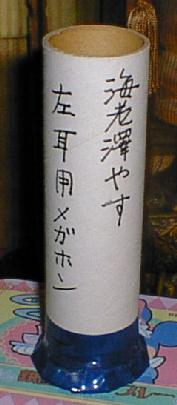 海老澤やす
左耳用メガホン